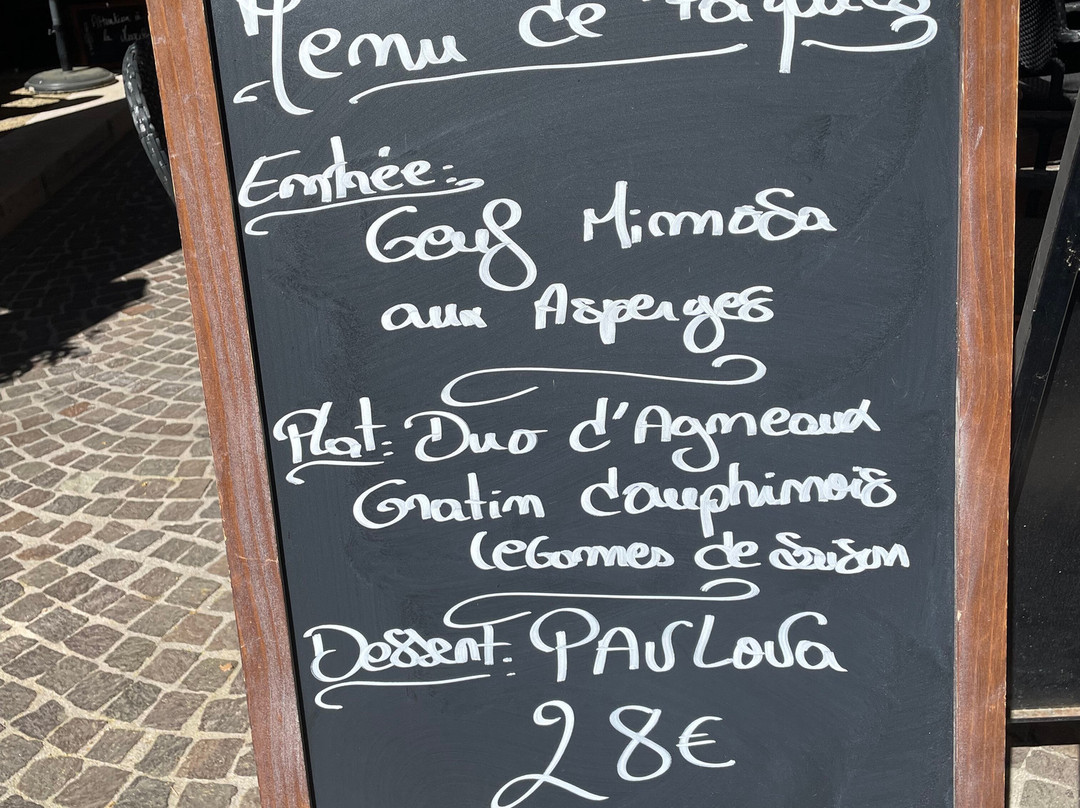 Menu de Pâques
Entrée:
Oeuf Mimosa
aux Asperges
Plat: Duo d'Agneaux
Gratin dauphinois
Legumes de Saison
Dessert: PAVLova
28€